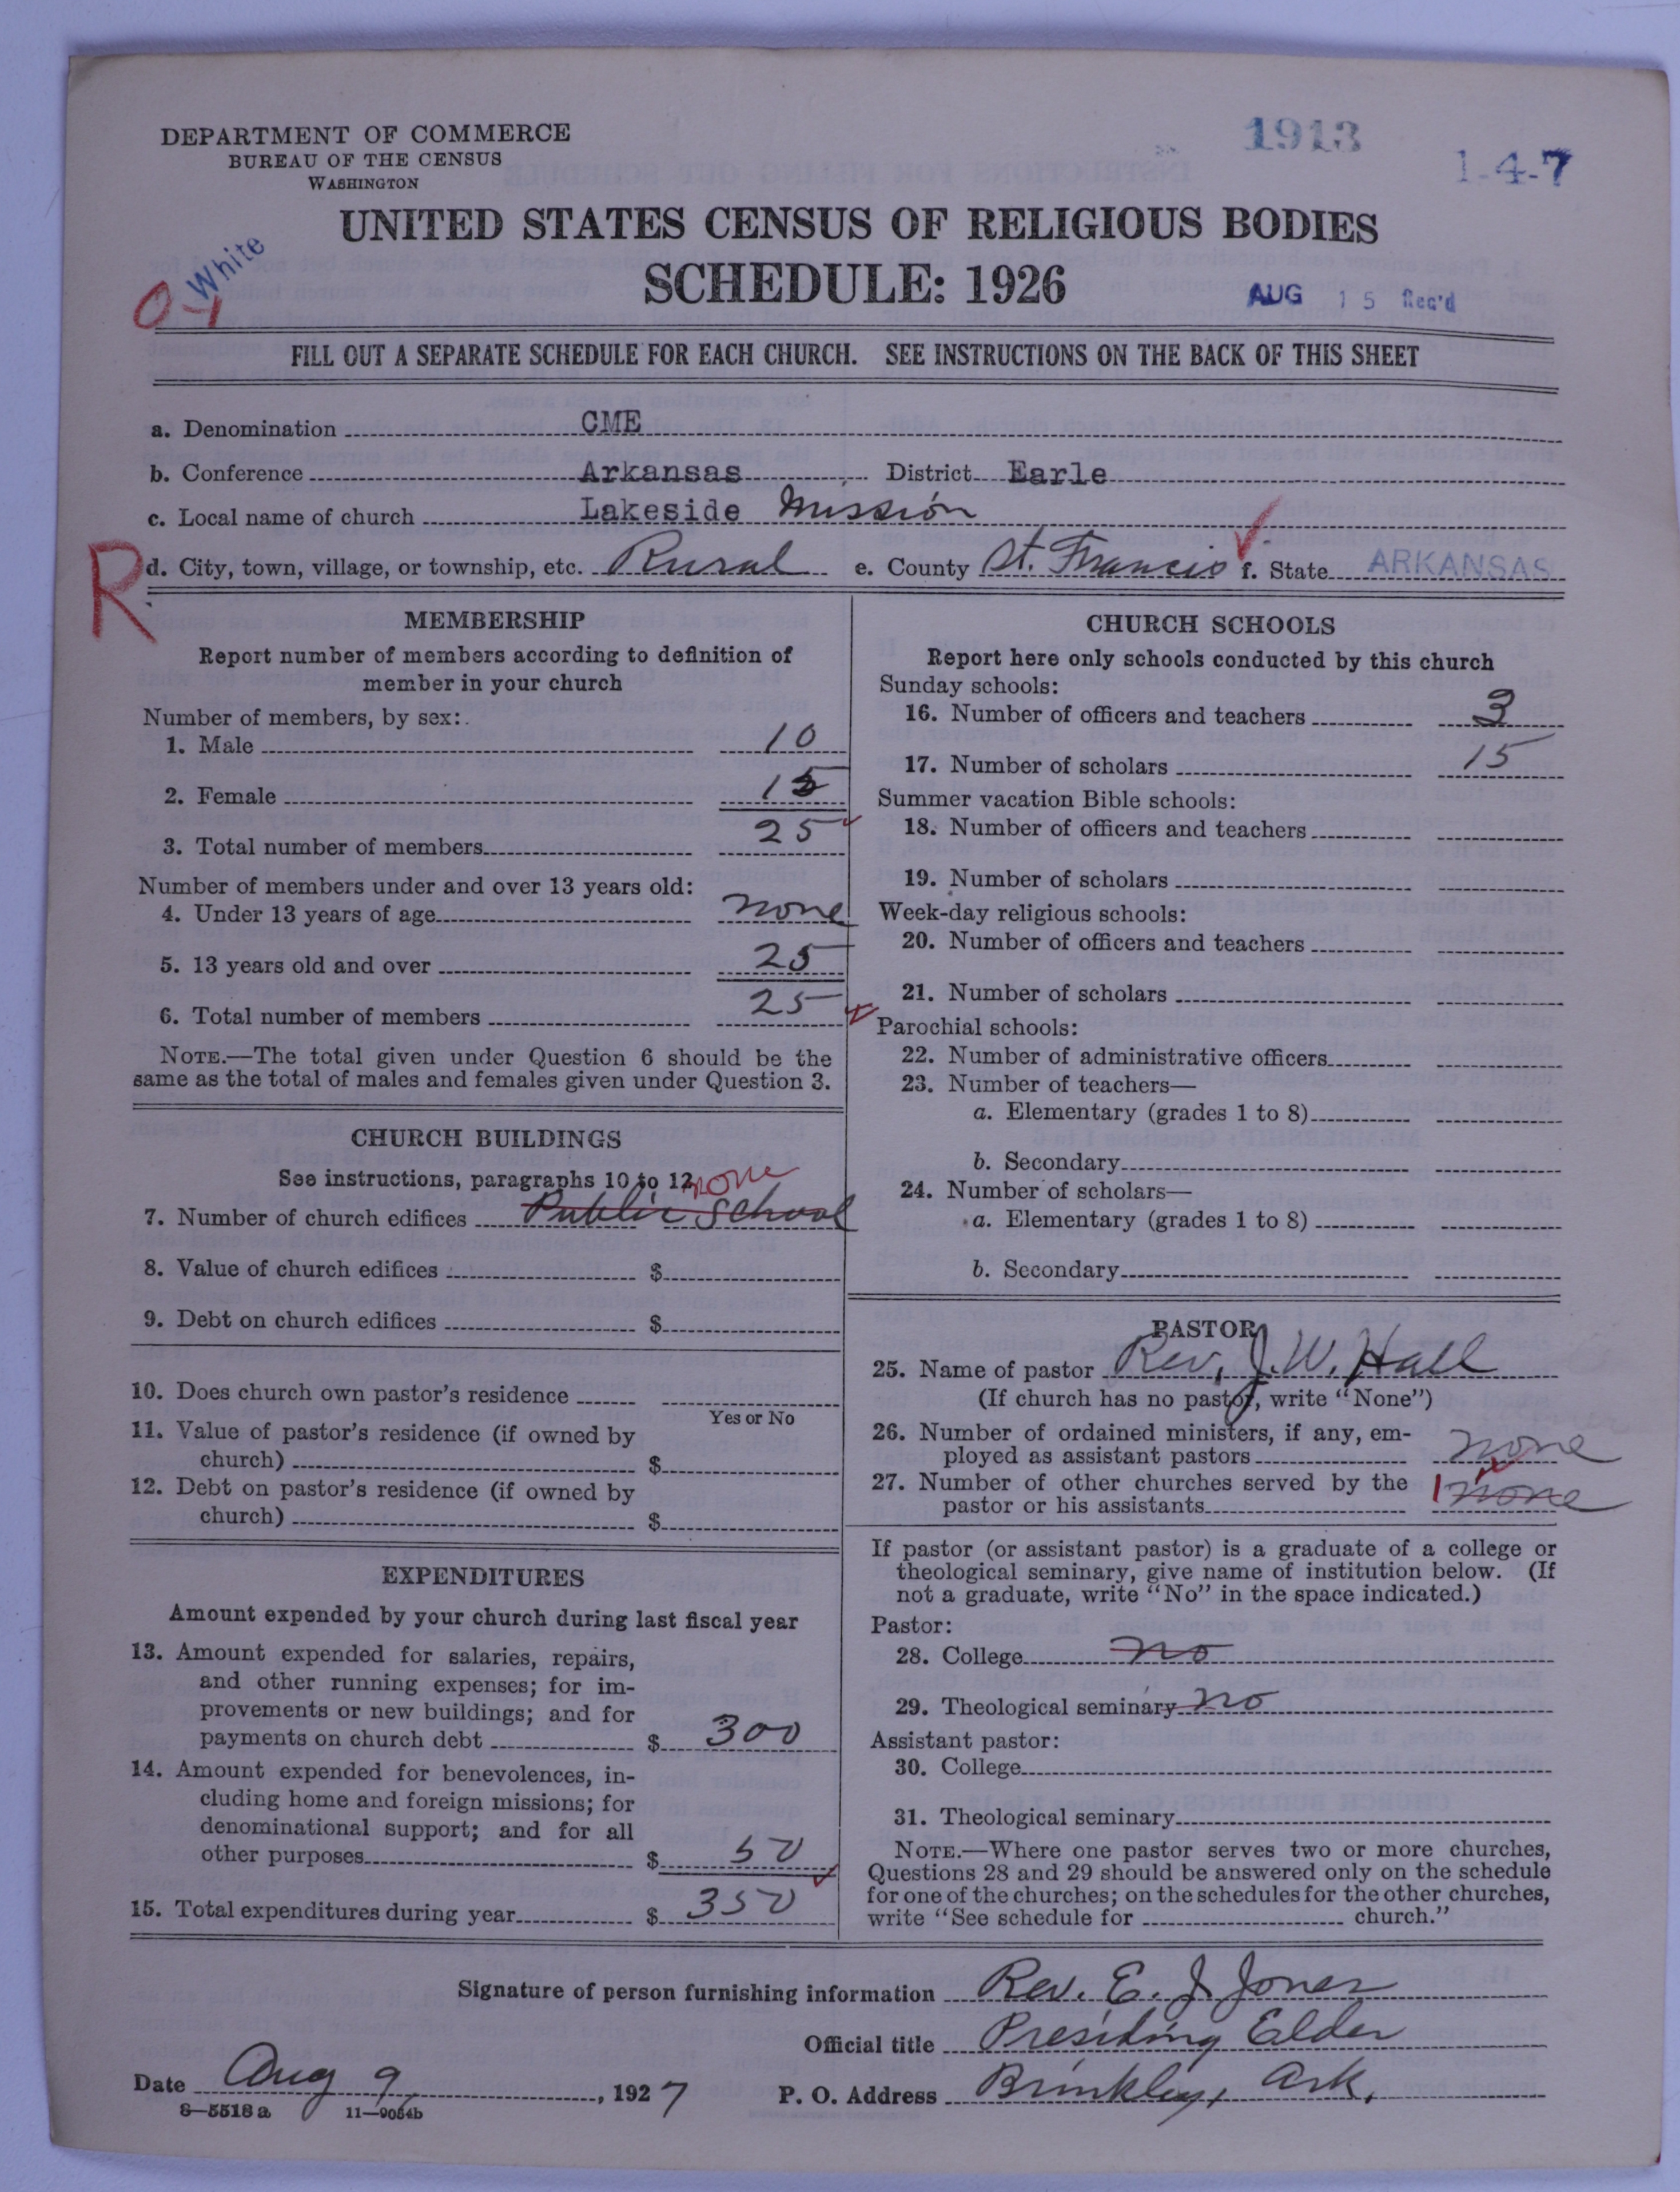 DEPARTMENT OF COMMERCE
BUREAU OF THE CENSUS
WASHINGTON
1913
1-4-7
UNITED STATES CENSUS OF RELIGIOUS BODIES
SCHEDULE: 1926
White
AUG 15 Rec'd
FILL OUT A SEPARATE SCHEDULE FOR EACH CHURCH. SEE INSTRUCTIONS ON THE BACK OF THIS SHEET
a. Denomination CME
b. Conference Arkansas District Earle
c. Local name of church Lakeside Mission
R
d. City, town, village, or township, etc. Rural e. County St. Francis f. State ARKANSAS
MEMBERSHIP
Report number of members according to definition of
member in your church
Number of members, by sex:
1. Male 10
2. Female 15
3. Total number of members 25
Number of members under and over 13 years old:
4. Under 13 years of age none
5. 13 years old and over 25
6. Total number of members 25
NOTE.—The total given under Question 6 should be the
same as the total of males and females given under Question 3.
CHURCH BUILDINGS
See instructions, paragraphs 10 to 12 none
7. Number of church edifices Public School
8. Value of church edifices $
9. Debt on church edifices $
10. Does church own pastor's residence
Yes or No
11. Value of pastor's residence (if owned by
church) $
12. Debt on pastor's residence (if owned by
church) $
EXPENDITURES
Amount expended by your church during last fiscal year
13. Amount expended for salaries, repairs,
and other running expenses; for im-
provements or new buildings; and for
payments on church debt $ 300
14. Amount expended for benevolences, in-
cluding home and foreign missions; for
denominational support; and for all
other purposes $ 50
15. Total expenditures during year $ 350
CHURCH SCHOOLS
Report here only schools conducted by this church
Sunday schools:
16. Number of officers and teachers 3
17. Number of scholars 15
Summer vacation Bible schools:
18. Number of officers and teachers
19. Number of scholars
Week-day religious schools:
20. Number of officers and teachers
21. Number of scholars
Parochial schools:
22. Number of administrative officers
23. Number of teachers—
a. Elementary (grades 1 to 8)
b. Secondary
24. Number of scholars—
a. Elementary (grades 1 to 8)
b. Secondary
PASTOR
25. Name of pastor Rev. J. W. Hall
(If church has no pastor, write "None")
26. Number of ordained ministers, if any, em-
ployed as assistant pastors none
27. Number of other churches served by the
pastor or his assistants 1 none
If pastor (or assistant pastor) is a graduate of a college or
theological seminary, give name of institution below. (If
not a graduate, write "No" in the space indicated.)
Pastor:
28. College no
29. Theological seminary no
Assistant pastor:
30. College
31. Theological seminary
NOTE.—Where one pastor serves two or more churches,
Questions 28 and 29 should be answered only on the schedule
for one of the churches; on the schedules for the other churches,
write "See schedule for church."
Signature of person furnishing information Rev. E. J. Jones
Official title Presiding Elder
Date Aug 9, 1927 P. O. Address Brinkley, Ark.
8-5518 a 11-9054b